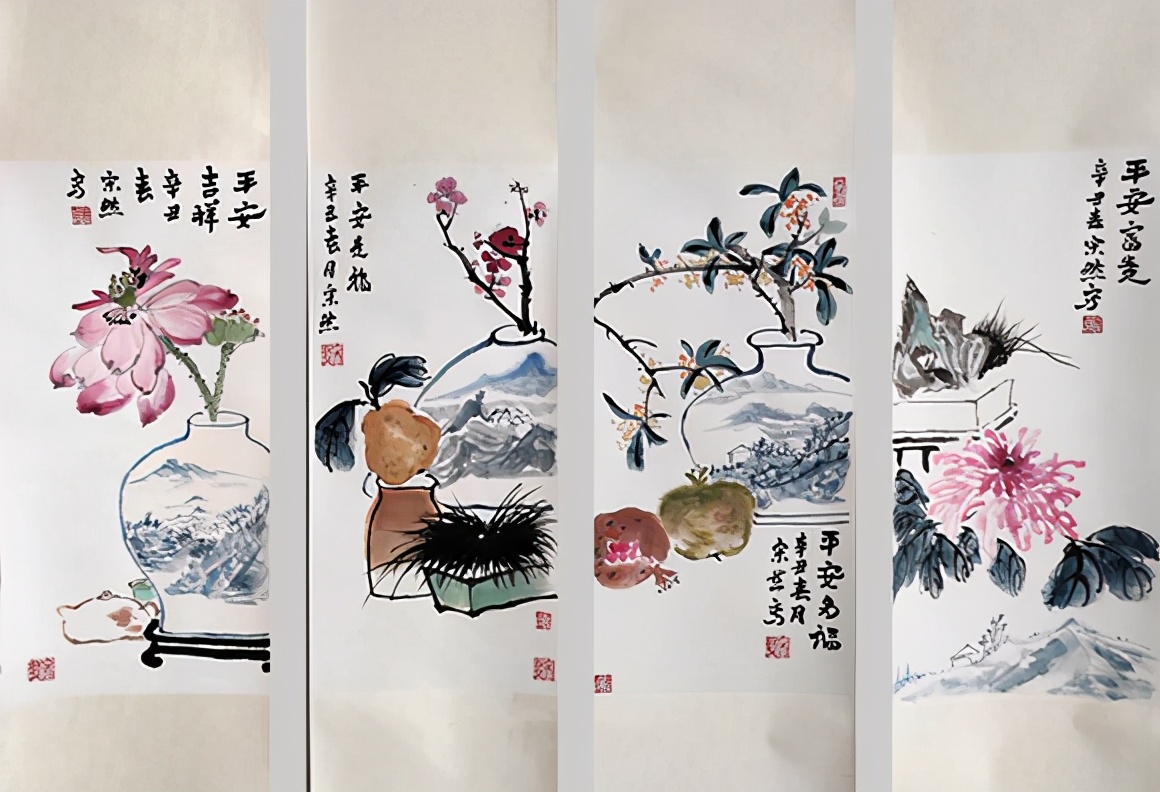 平安
吉祥
辛丑
春
宗然
写
平安是福
辛丑春月宗然
平安多福
辛丑春月
宗然写
平安富贵
辛丑春宗然写